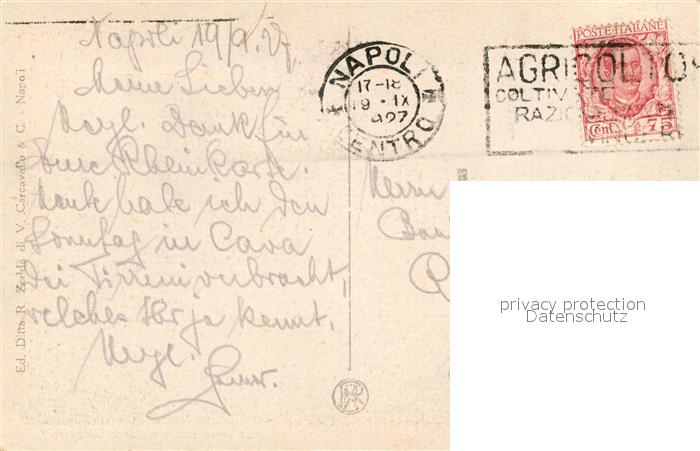 Napoli 19/9.27.
Meine Lieben
Herzl. Dank für
Eure Rheinkarte.
Heute habe ich den
Sonntag in Cava
dei Tirreni verbracht,
welches Ihr ja kennt.
Herzl.
Herrn
Ed. Ditta R. Zedda di V. Carcavallo & C. - Napoli
NAPOLI
17-18
19 · IX
1927
CENTRO
AGRICOLTO
COLTIVATE
RAZIO
POSTE ITALIANE
Cent.
privacy protection
Datenschutz